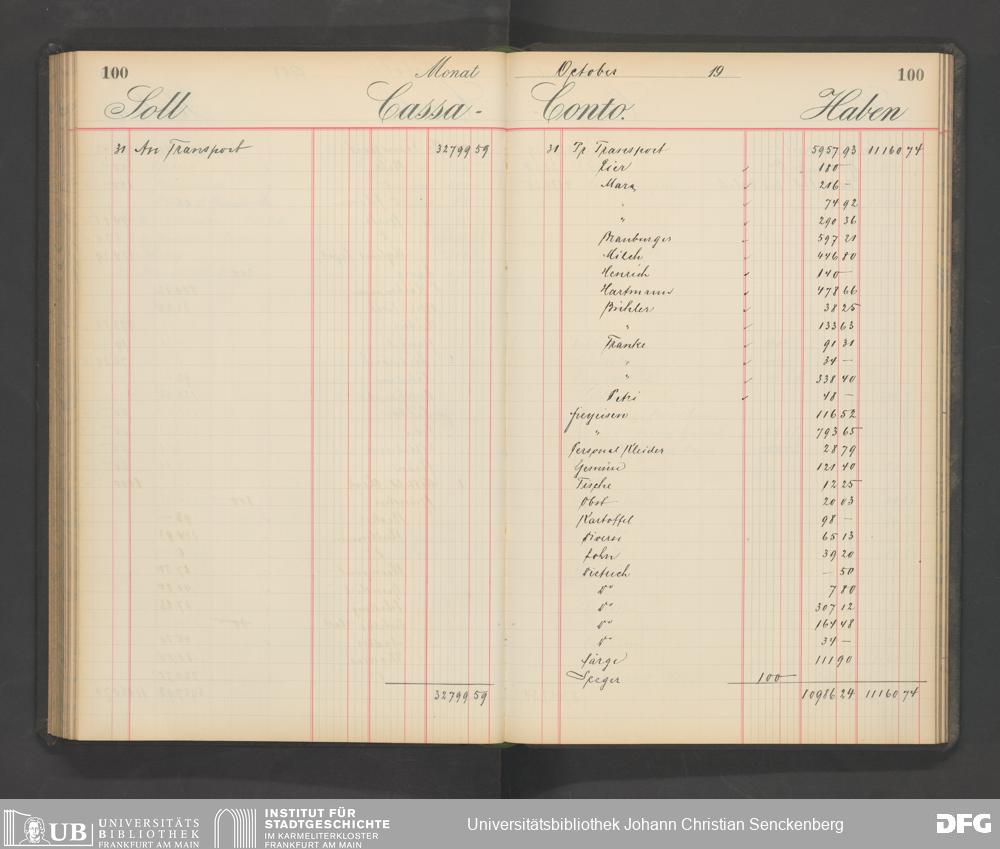 100 Monat
Soll Cassa-
31 An Transport 32799 59
32799 59
October 19 100
Conto. Haben
31 Pr Transport 5957 93 11160 74
Eier 180 —
216 —
" 74 92
" 290 36
597 21
Milch 446 80
Henrich 140 —
Hartmann 478 66
Bühler 38 25
" 133 63
Franke 91 31
" 34 —
" 331 40
Petri 48 —
116 52
" 793 65
Personal Kleider 28 79
Gemüse 121 40
Fische 12 25
Obst 20 03
Kartoffel 98 —
Divers 65 13
Lohn 39 20
Dietrich — 50
Do 7 80
Do 307 12
Do 164 48
Do 34 —
111 90
Seeger 100 —
10986 24 11160 74
UB UNIVERSITÄTS
BIBLIOTHEK
FRANKFURT AM MAIN
INSTITUT FÜR
STADTGESCHICHTE
IM KARMELITERKLOSTER
FRANKFURT AM MAIN
Universitätsbibliothek Johann Christian Senckenberg
DFG